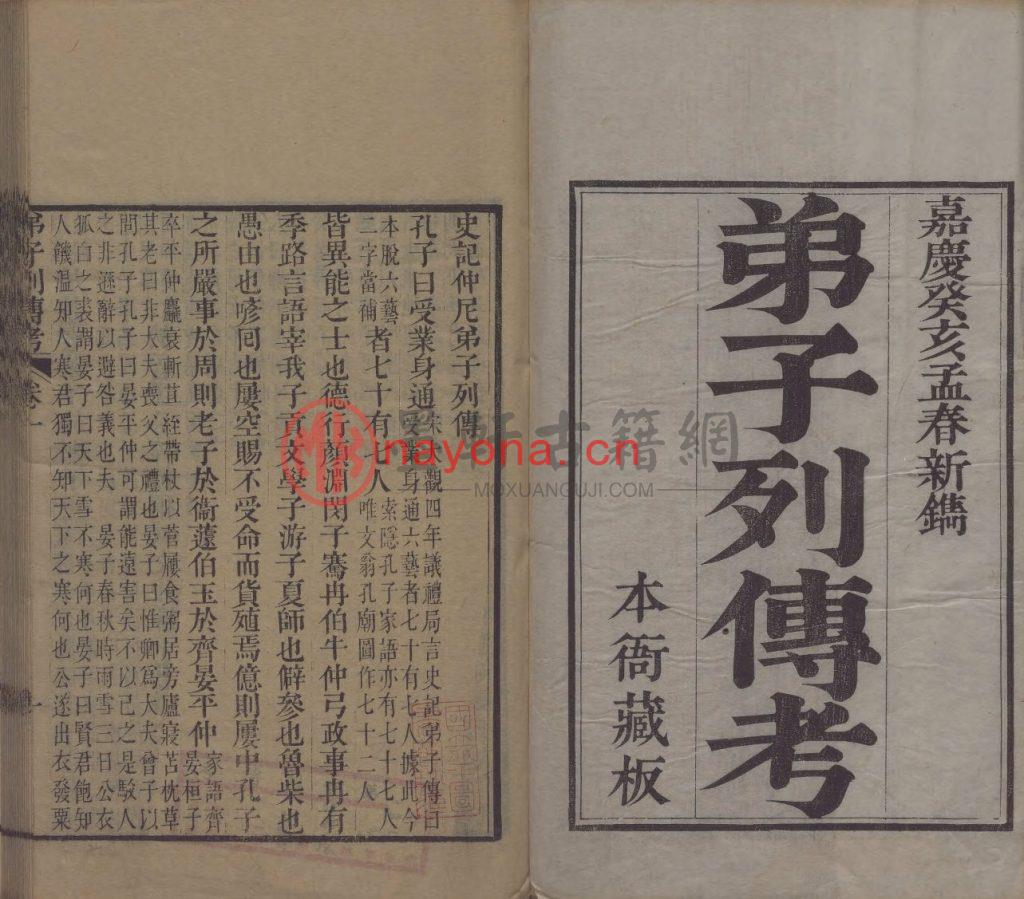 嘉慶癸亥孟春新鐫
弟子列傳考
本衙藏板
史記仲尼弟子列傳
孔子曰受業身通宋大觀四年議禮局言史記弟子傳曰受業身通六藝者七十有七人據此今
本脫六藝二字當補者七十有七人索隱孔子家語亦有七十七人唯文翁孔廟圖作七十二人
皆異能之士也德行顏淵閔子騫冉伯牛仲弓政事冉有
季路言語宰我子貢文學子游子夏師也僻參也魯柴也
愚由也喭回也屢空賜不受命而貨殖焉億則屢中孔子
之所嚴事於周則老子於衞蘧伯玉於齊晏平仲家語齊晏桓子
卒平仲麤衰斬苴絰帶杖以菅屨食粥居旁廬寢苫枕草
其老曰非大夫喪父之禮也晏子曰惟卿爲大夫曾子以
問孔子孔子曰晏平仲可謂能遠害矣不以已之是駁人
之非遜辭以避咎義也夫 晏子春秋時雨雪三日公衣
狐白之裘謂晏子曰天下雪不寒何也晏子曰賢君飽知
人饑溫知人寒君獨不知天下之寒何也公遂出衣發粟
弟子列傳考 卷一 一
墨軒古籍網
nayona.cn
MOXUANGUJI.COM